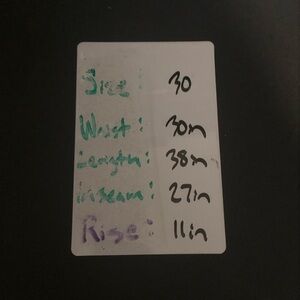 Size: 30
Waist: 30in
Length: 38in
inseam: 27in
Rise: 11in